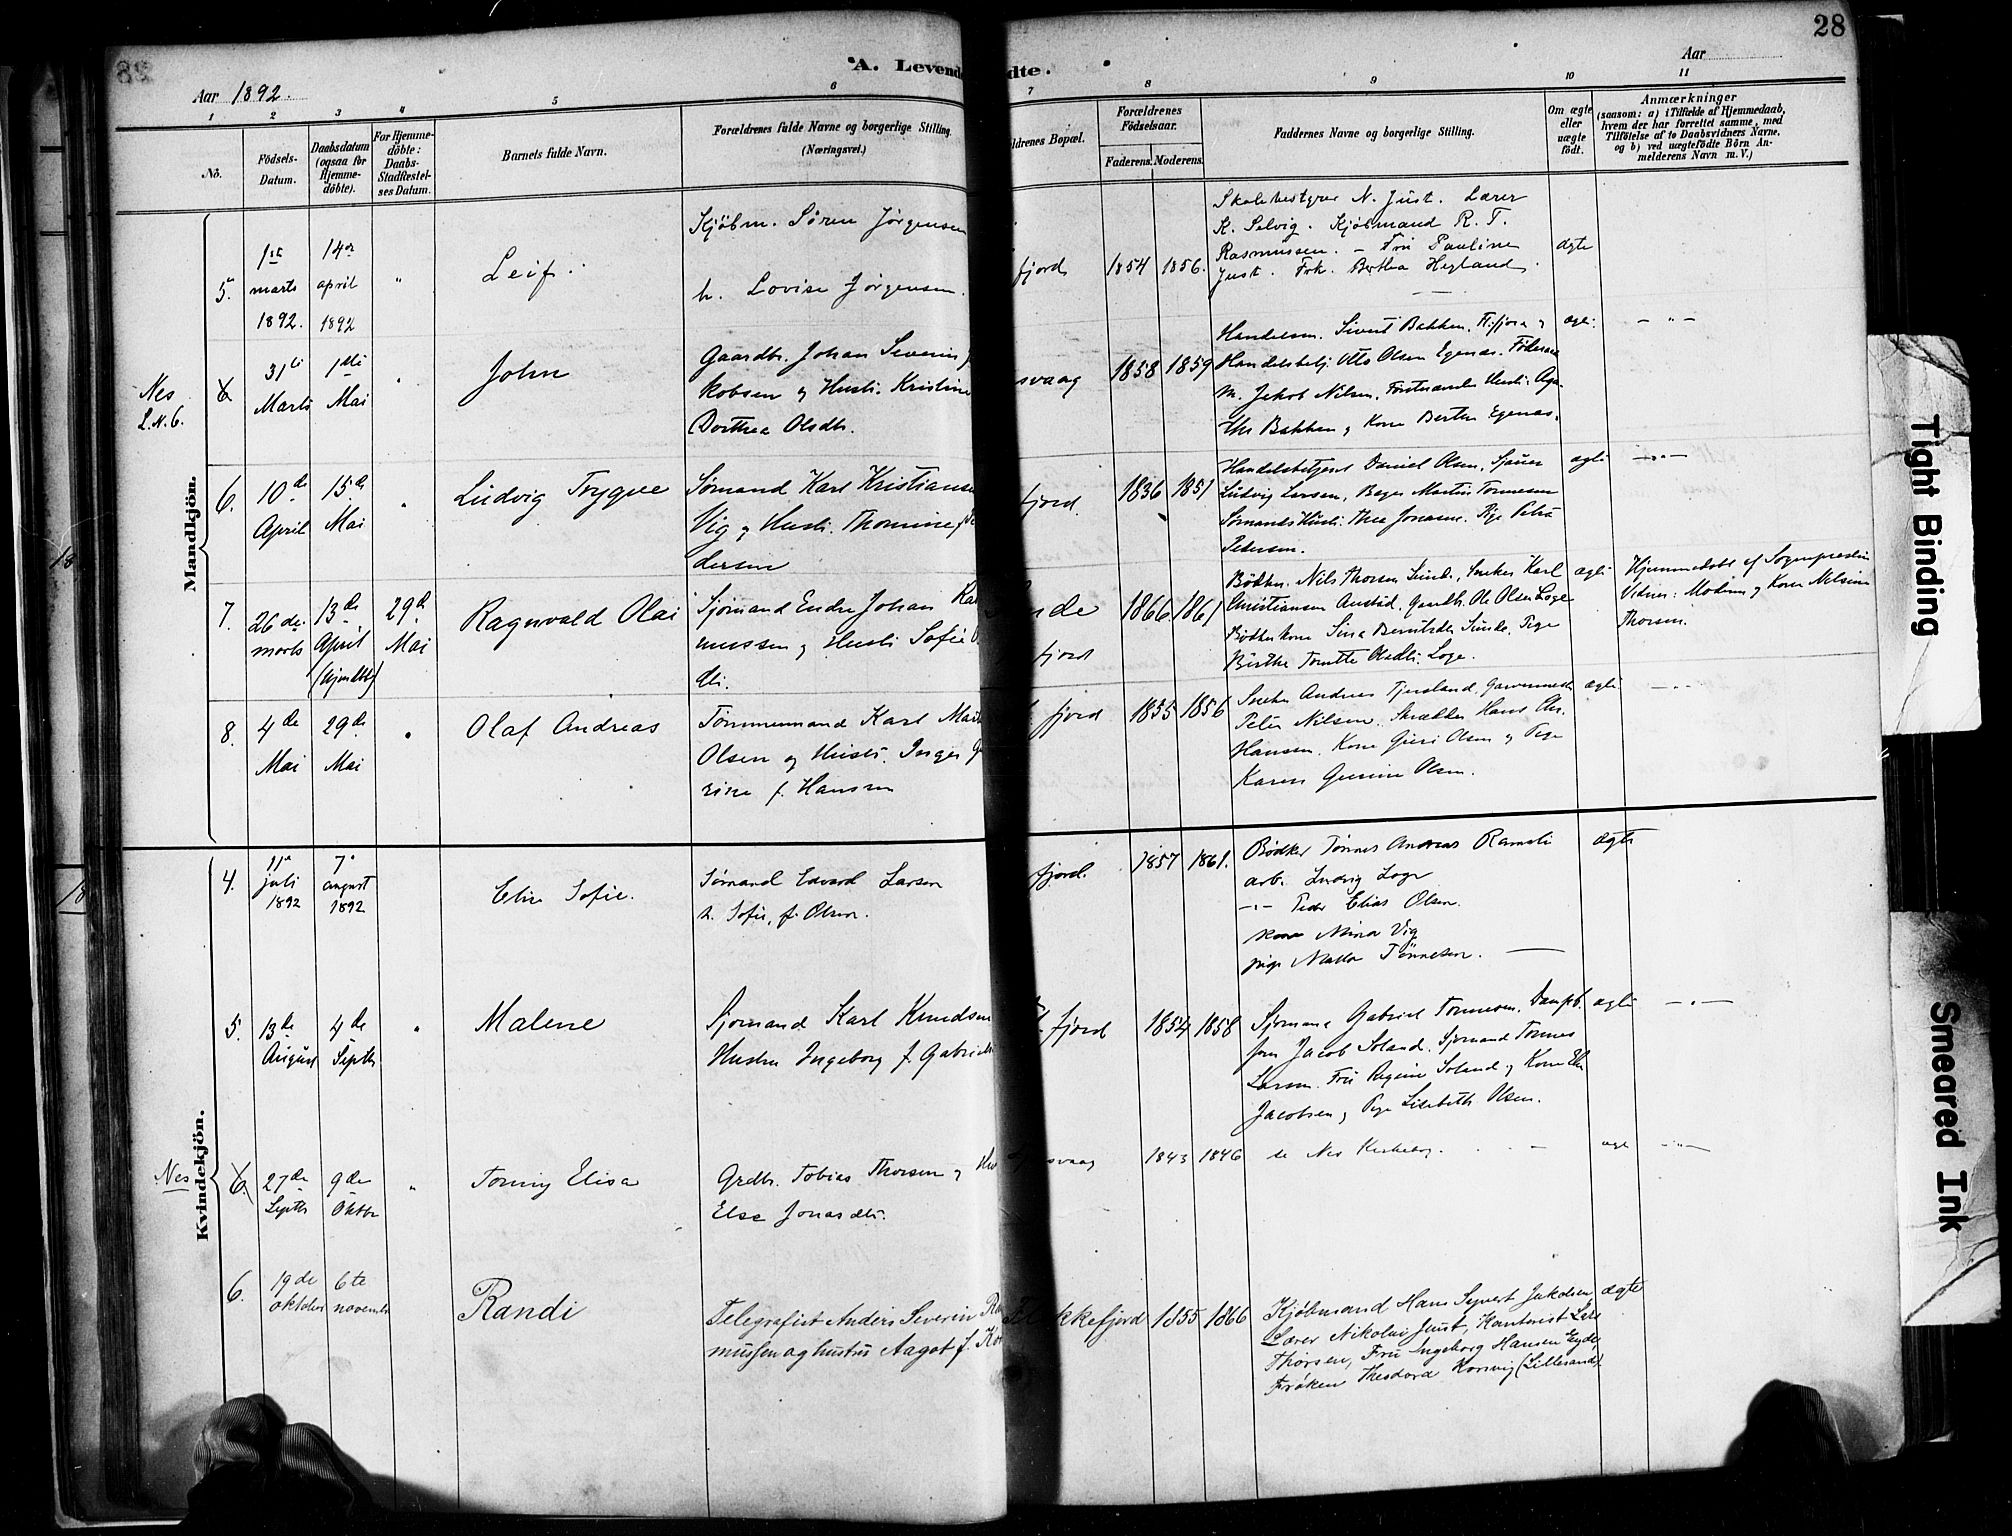 28
A. Levende
dte.
Aar 1892.
Aar
1 2 3 4 5 6 7 8 9 10 11
No.
Födsels-
Datum.
Daabsdatum
(ogsaa for
Hjemme-
döbte).
For Hjemme-
döbte:
Daabs-
Stadfestel-
ses Datum.
Barnets fulde Navn.
Forældrenes fulde Navne og borgerlige Stilling.
(Næringsvei.)
ldrenes Bopæl.
Forældrenes
Födselsaar.
Faderens. Moderens.
Faddernes Navne og borgerlige Stilling.
Om ægte
eller
uægte
født.
Anmærkninger
(saasom: a) i Tilfælde af Hjemmedaab,
hvem der har forrettet samme, med
Tilföielse af to Daabsvidners Navne,
og b) ved uægtefödte Börn An-
melderens Navn m. V.)
Mandkjön.
5.
1ste
marts
1892.
14de
april
1892
"
Leif.
Kjöbm. Sören Jörgensen
h. Lovise Jörgensen.
fjord
1854 1856.
Skolebestyrer N. Just. Lærer
K. Selvig. Kjöbmand R. T.
Rasmussen. – Fru Pauline
Just. Frk. Berthea Hegland.
ægte
Nes
L.N.6.
6
31te
Marts
1ste
Mai
"
John
Gaardbr. Johan Severin J
kobsen og Hustr. Kristine
Dorthea Olsdtr.
svaag
1858 1859
Handelsm. Sivert Bakken, Fl.fjord og
Handelsbetj. Olsen Egenæs. Føderaa
m. Jakob Nilsen,
Bakken og Kone Berthe Egenæs.
ægte
– " –
6.
10de
April
15de
Mai
"
Ludvig Trygve
Sømand Karl Kristiansen
Vig og Hustr. Thomine f.
dersen
fjord.
1836 1851
Handelsbetjent Daniel Olsen,
Ludvig Larsen, Bager Martin Tønnesen
Sømands Hustr. Thea Jonasen. Pige Petra
Pedersen.
ægte
– " –
7.
26de
marts
13de
April
(hjemdbt)
29de
Mai
Ragnvald Olai
Sjømand Endre Johan Ras
mussen og Hustr. Sofie
dtr.
nde
fjord
1866 1861
Bødker. Nils Thorsen Sunde, Snekker Karl
Christiansen Anstad, Gaardbr. Ole Olsen Loge
Bødkerkone Sina Berntsdtr Sunde, Pige
Birthe Tomette Olsdtr. Loge.
ægte
Hjemmedøbt af Sognepresten
Vidner: Moderen og Kone Nilsine
Thorsen.
8.
4de
Mai
29de
Mai
"
Olaf Andreas
Tømmermand Karl Mart
Olsen og Hustr. Inger
rine f. Hansen
fjord
1855 1856
Snekker Andreas Tjersland, Garvermester
Peter Nilsen. Skrædder Hans Chr.
Hansen. Kone Guri Olsen og Pige
Karen Gurine Olsen.
ægte
– " –
Kvindekjön.
4.
11te
juli
1892
7de
august
1892
Elise Sofie.
Sømand Edvard Larsen
h. Sofie, f. Olsen.
fjord.
1857 1861.
Bødker Tønnes Andreas Ramsli
arb. Ludvig Loge
– " – Peder Elias Olsen.
kone Mina Vig
pige Malla Tönnesen.
ægte
5.
13de
August
4de
Septbr
"
Malene
Sjømand Karl Knudsen
Hustru Ingeborg f. Gabriels
fjord
1854 1858
Sjømand Gabriel Tønnesen. Dampb.
Jacob Soland. Sjømand Tønnes
Larsen. Fru Regine Soland og Kone
Jacobsen og Pige Lisebeth Olsen.
ægte
– " –
Nes
6.
27de
Septbr
9de
Oktbr
"
Tonny Elisa
Grdbr. Tobias Thorsen og Hus
Else Jonasdtr.
svaag
1843 1846
se Nes Kirkebog.
ægte
– " –
6.
19de
oktober
6te
november
Randi
Telegrafist Anders Severin Ras
mussen og hustru Aagot f. Kor
kkefjord
1855 1866
Kjöbmand Hans Syvert Jakobsen,
Lærer Nikolai Just, Kontorist Lars
Thorsen, Fru Ingeborg Hansen Eyde,
Fröken Theodora Korsvig (Lillesand).
ægte
Tight Binding
Smeared Ink